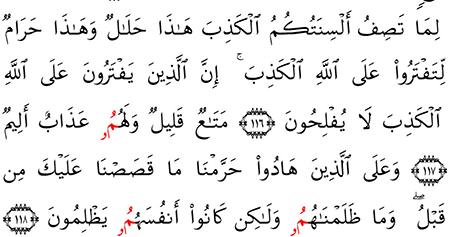 لِمَا تَصِفُ أَلْسِنَتُكُمُ ٱلْكَذِبَ هَـٰذَا حَلَـٰلٌ وَهَـٰذَا حَرَامٌ
لِّتَفْتَرُوا۟ عَلَى ٱللَّهِ ٱلْكَذِبَ ۚ إِنَّ ٱلَّذِينَ يَفْتَرُونَ عَلَى ٱللَّهِ
ٱلْكَذِبَ لَا يُفْلِحُونَ ﴿١١٦﴾ مَتَـٰعٌ قَلِيلٌ وَلَهُمُۥ عَذَابٌ أَلِيمٌ
﴿١١٧﴾ وَعَلَى ٱلَّذِينَ هَادُوا۟ حَرَّمْنَا مَا قَصَصْنَا عَلَيْكَ مِن
قَبْلُ ۖ وَمَا ظَلَمْنَـٰهُمُۥ وَلَـٰكِن كَانُوٓا۟ أَنفُسَهُمُۥ يَظْلِمُونَ ﴿١١٨﴾